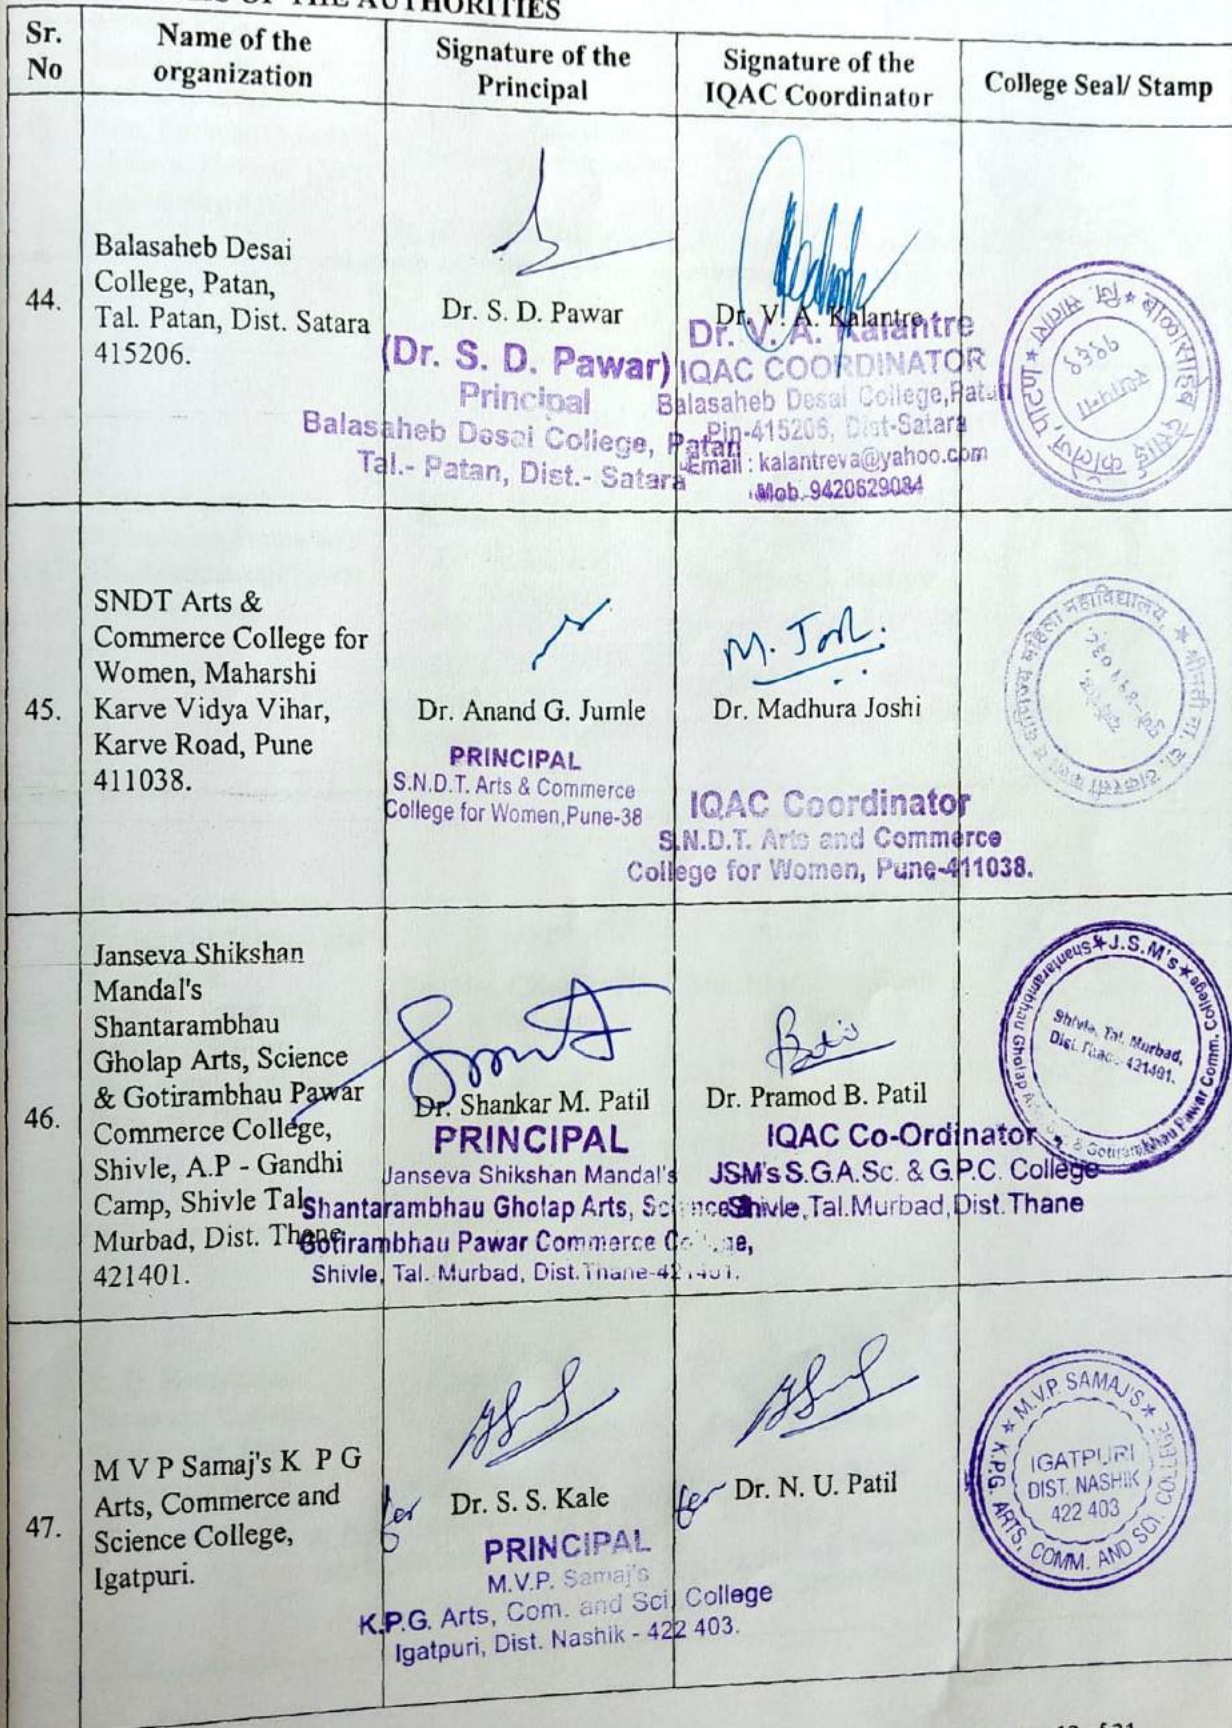 OF THE AUTHORITIES
Sr. No
Name of the organization
Signature of the Principal
Signature of the IQAC Coordinator
College Seal/ Stamp
44.
Balasaheb Desai
College, Patan,
Tal. Patan, Dist. Satara
415206.
Dr. S. D. Pawar
(Dr. S. D. Pawar)
Principal
Balasaheb Desai College, Patan
Tal.- Patan, Dist.- Satara
Dr. V. A. Kalantre
Dr. V. A. Kalantre
IQAC COORDINATOR
Balasaheb Desai College, Patan
Pin-415206, Dist-Satara
Email : kalantreva@yahoo.com
Mob. 9420629084
बाळासाहेब देसाई कॉलेज, पाटण * जि. सातारा *
स्थापना
45.
SNDT Arts &
Commerce College for
Women, Maharshi
Karve Vidya Vihar,
Karve Road, Pune
411038.
Dr. Anand G. Jumle
PRINCIPAL
S.N.D.T. Arts & Commerce
College for Women,Pune-38
M. Joshi.
Dr. Madhura Joshi
IQAC Coordinator
S.N.D.T. Arts and Commerce
College for Women, Pune-411038.
श्रीमती ना. दा. ठाकरसी कला व वाणिज्य महिला महाविद्यालय,
46.
Janseva Shikshan
Mandal's
Shantarambhau
Gholap Arts, Science
& Gotirambhau Pawar
Commerce College,
Shivle, A.P - Gandhi
Camp, Shivle Tal.
Murbad, Dist. Thane
421401.
Dr. Shankar M. Patil
PRINCIPAL
Janseva Shikshan Mandal's
Shantarambhau Gholap Arts, Science &
Gotirambhau Pawar Commerce College,
Shivle, Tal. Murbad, Dist.Thane-421401.
Dr. Pramod B. Patil
IQAC Co-Ordinator
JSM's S.G.A.Sc. & G.P.C. College
Shivle, Tal.Murbad, Dist.Thane
J.S.M's
Shantarambhau Gholap & Gotirambhau Pawar Comm. College
Shivle, Tal. Murbad,
Dist. Thane 421401.
47.
M V P Samaj's K P G
Arts, Commerce and
Science College,
Igatpuri.
for
Dr. S. S. Kale
PRINCIPAL
M.V.P. Samaj's
K.P.G. Arts, Com. and Sci. College
Igatpuri, Dist. Nashik - 422 403.
for
Dr. N. U. Patil
* M.V.P. SAMAJ'S *
K.P.G. ARTS, COMM. AND SCI. COLLEGE
IGATPURI
DIST. NASHIK
422 403